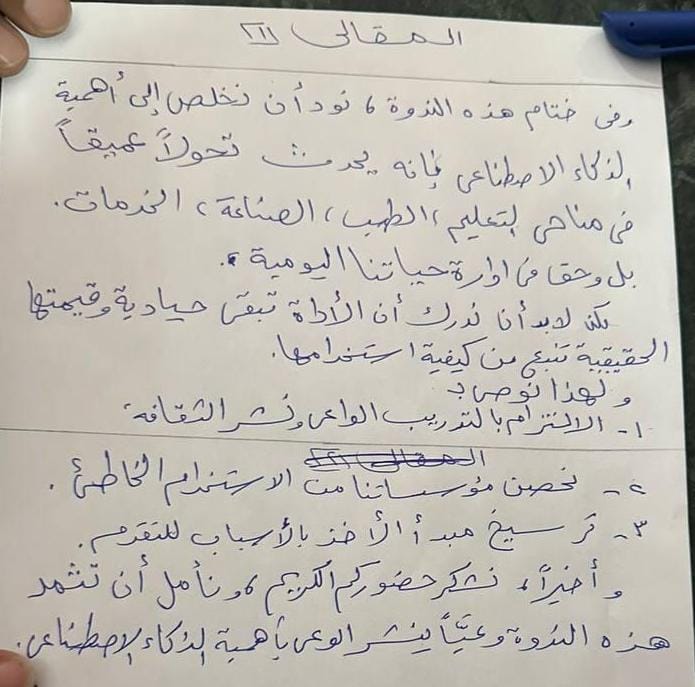 المقالى ٢١١
وفى ختام هذه الندوة ، نود أن نخلص إلى أهمية
الذكاء الاصطناعى فإنه يحدث تحولاً عميقاً
فى مناحى التعليم ، الطب ، الصناعة ، الخدمات .
بل وحتى فى ادارة حياتنا اليومية .
لكن لابد أن ندرك أن الأداة تبقى حيادية وقيمتها
الحقيقية تنبع من كيفية استخدامها .
ولهذا نوصى بـ
١- الالتزام بالتدريب الواعى ونشر الثقافة .
٢- نحصن مؤسساتنا من الاستخدام الخاطئ .
٣- ترسيخ مبدأ الأخذ بالأسباب للتقدم .
وأخيراً ، نشكر حضوركم الكريم ، ونأمل أن تثمر
هذه الندوة وعيًّا ينشر الوعى بأهمية الذكاء الاصطناعى .